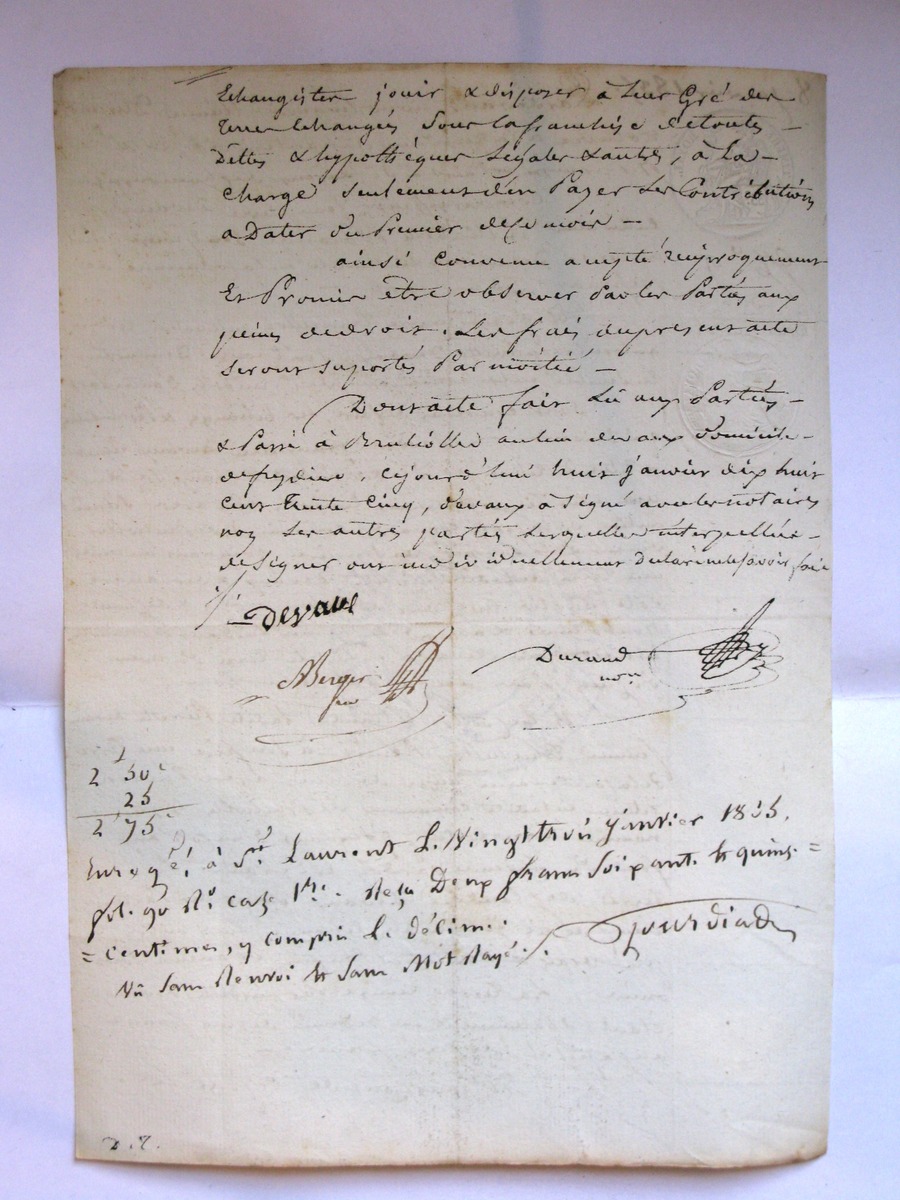 Echangister jouir & disposer à leur Gré des
terres Echangées sous la franchise de toutes
Dettes & hypothéques Légales & autres, à la
charge seulement d'en Payer les Contributions
a Dater du Premier de ce mois
ainsi convenu accepté réciproquement
Et Promis être observer Par les Parties aux
peines de droit. Les frais du present acte
seront suportés Par moitié
Dont acte fait Lû aux Parties
& Passé à Brulliolles au lieu de vaux Domicile
de , cejourd'hui huit janvier dix huit
cent trente cinq, devaux à Signé avec les notaires
non Les autres parties Lesquelles interpellées
de signer ont individuellement déclaré ne savoir faire
Devaux
Berger
Durand
not.re
2 f 50 c
25
2 f 75 c
Enregré. à St. Laurent L. Vingt trois janvier 1835.
fol. 90 Ro. case 1re. Reçu Deux francs Soixante & quinze =
= centimes, y compris L. décime.
Vû sans Renvoi & sans Mot Rayé.
D. 7.